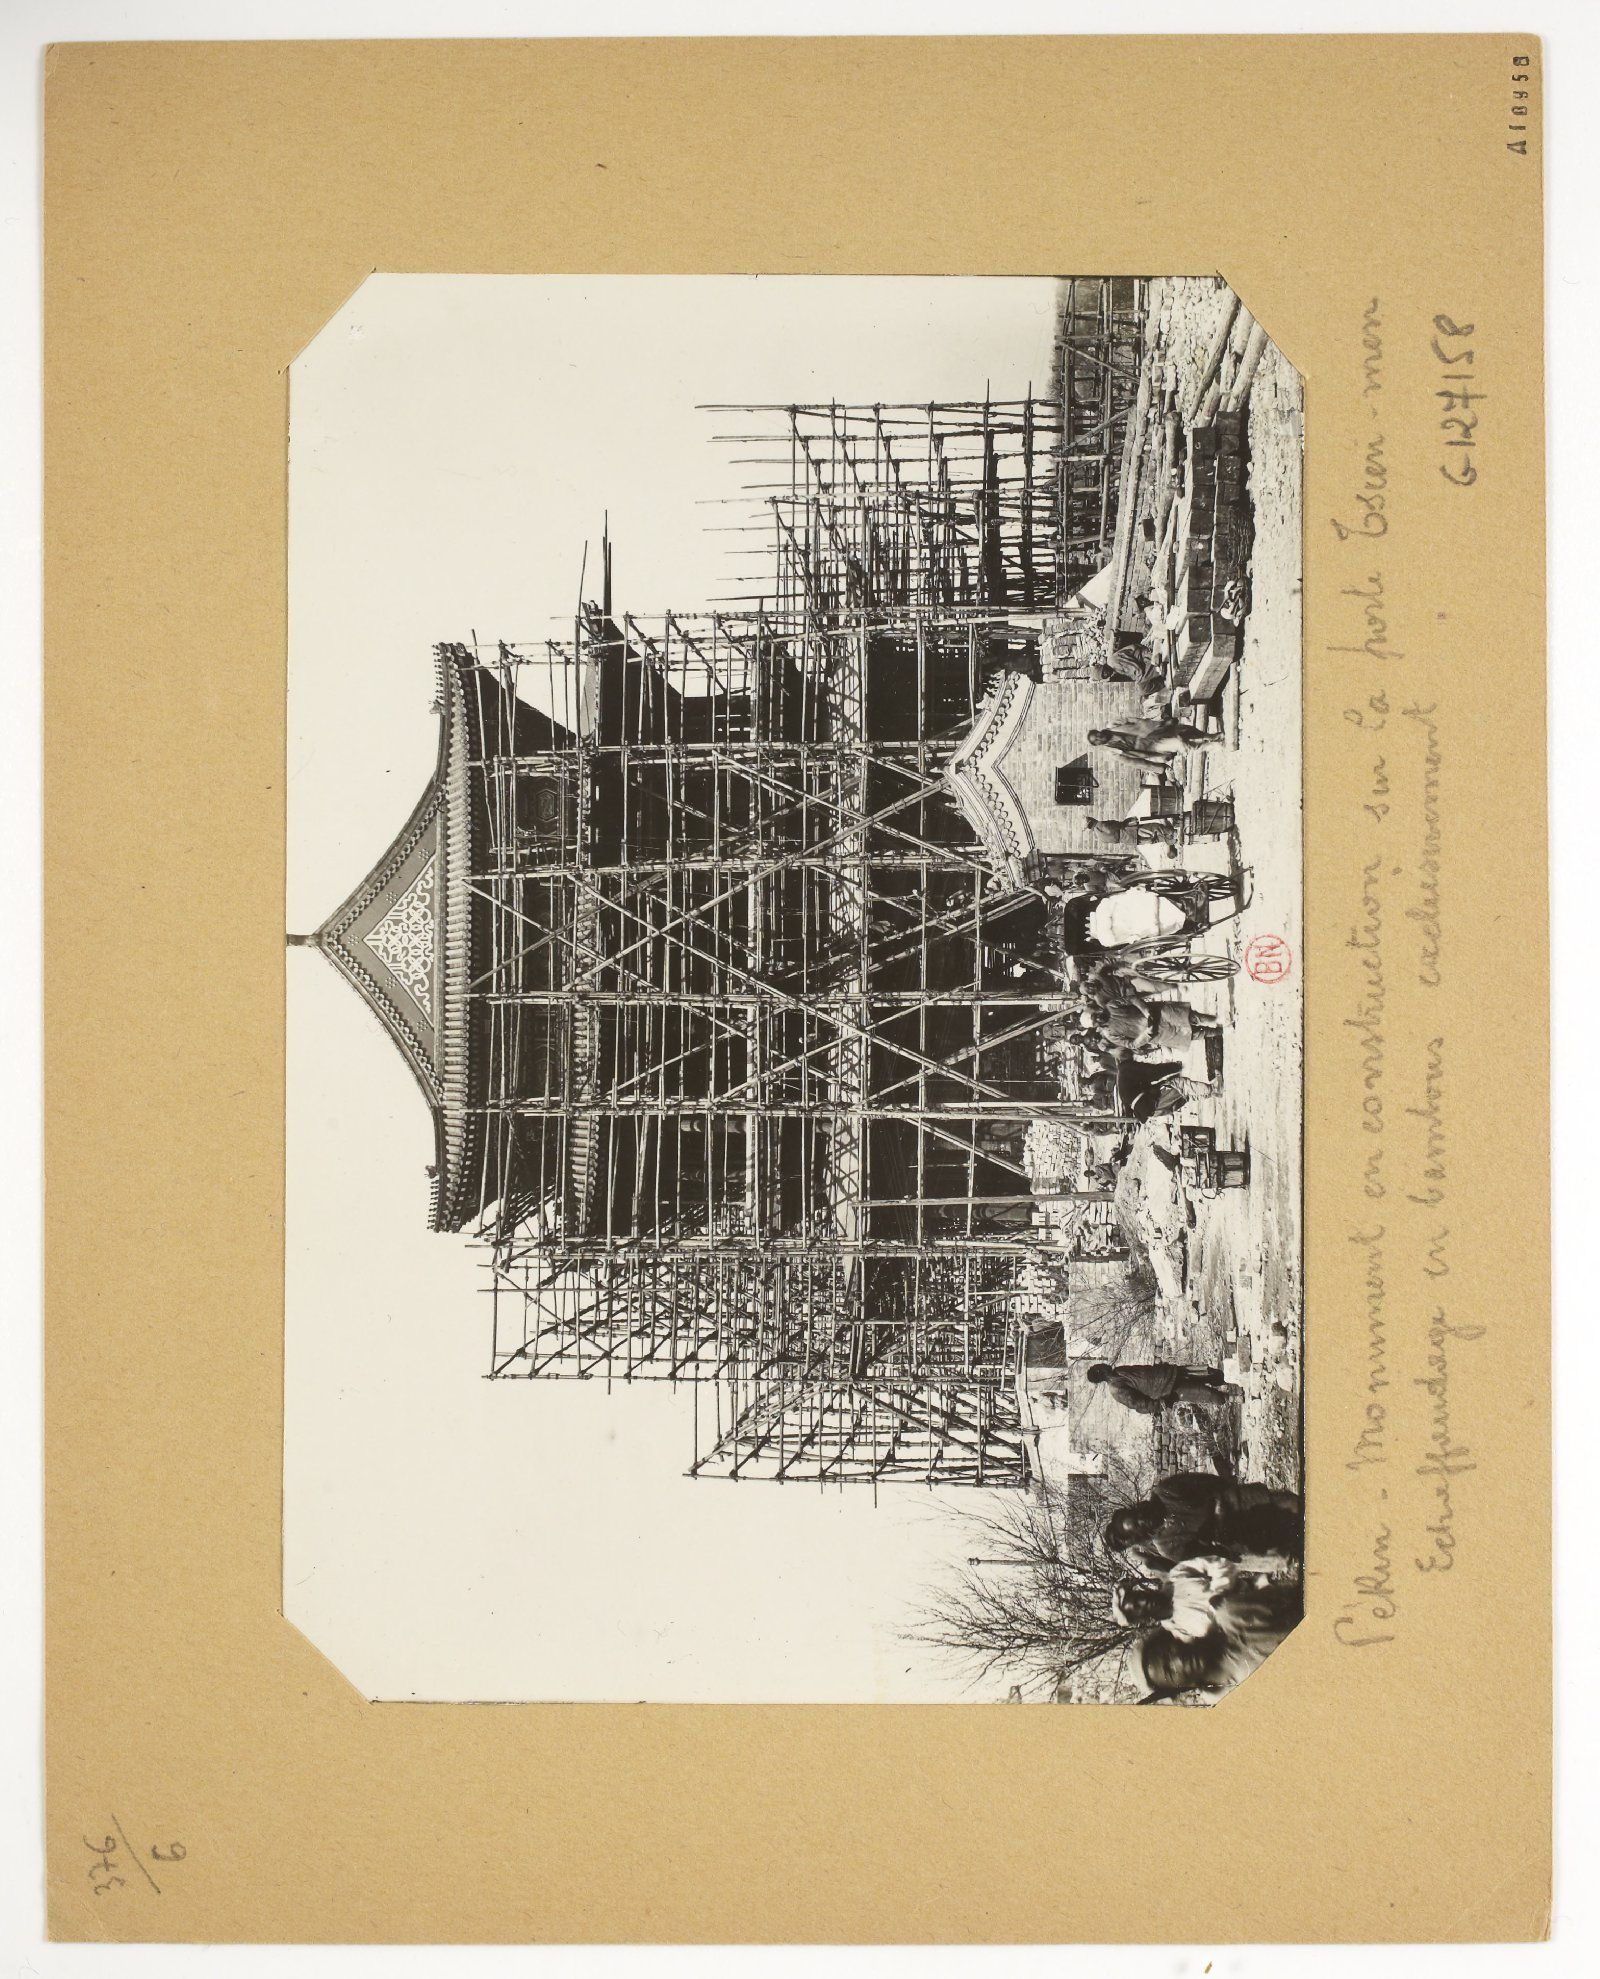 A18958
Pékin - Monument en construction sur la porte Tsien-men
Echaffaudage en bambous exclusivement
G 127158
BN
376/6